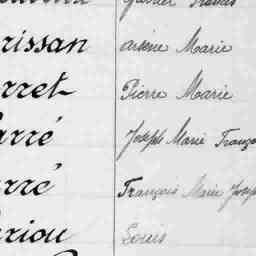 rissan Arsène Marie
rret Pierre Marie
arré Joseph Marie Franço
arré François Marie Josep
riou Louis